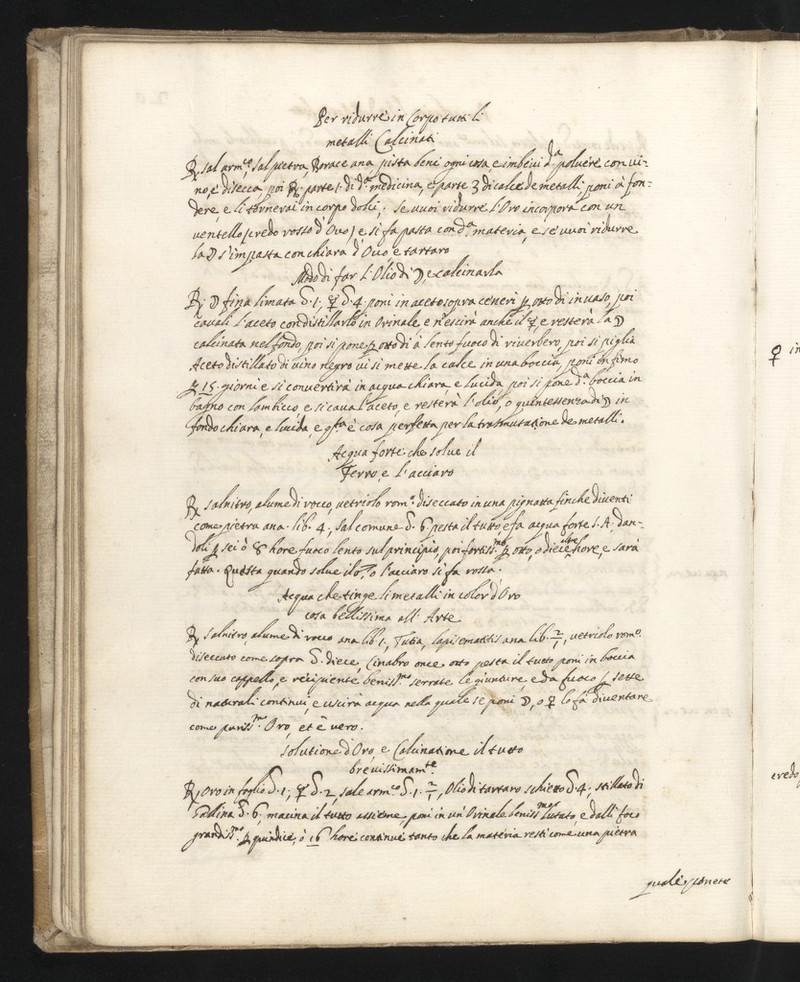 Per ridurre in Corpo tutti li
metalli Calcinati
℞ sal arm.co, sal pietra, Borace ana pista bene ogni cosa e imbevi d.a polvere con vi-
no, e disecca, poi ℞. parte 1. di d.a medicina, e parte 3 di calce de metalli poni à fon-
dere, e li tornerai in corpo dolci; se vuoi ridurre l'Oro incorpora con un
ventello /credo rosso d'Ovo/ e si fa pasta con d.a materia, e se vuoi ridurre
la ☽ s'impasta con chiara d'Ovo e tartaro
Modo di far l'Olio di ☽, e calcinarla
℞; ☽ fina limata 1.; ☿ 4. poni in aceto sopra ceneri p otto di in vaso, poi
cavali l'aceto con distillarlo in Orinale e n'escirà anche il ☿, e resterà la ☽
calcinata nel fondo, poi si pone p otto di à lento fuoco di riverbero, poi si piglia
Aceto distillato di vino negro vi si mette la calce in una boccia, poni in fimo
p 15. giorni e si convertirà in acqua chiara e lucida, poi si pone d.a boccia in
bagno con lambicco e si cava l'aceto, e resterà l'olio, o quintessenza di ☽ in
fondo chiara, e lucida, e q.sta è cosa perfetta per la trasmutatione de metalli.
Acqua forte che solve il
Ferro, e l'acciaro
℞ salnitro, alume di rocco, vetriolo rom.o diseccato in una pignatta finche diventi
come pietra ana. lib. 4., sal comune 6 pesta il tutto e fa acqua forte S. A; dan-
doli p sei ò 8 hore fuoco lento sul principio, poi fortiss.mo p otto, o diece altre hore, e sarà
fatta. Questa quando solve il ♂, o l'acciaro si fa rossa.
Acqua che tinge li metalli in color d'Oro
cosa bellissima all'Arte
℞ salnitro, alume di rocco ana lib. 1., Tutia, lapis ematitis ana lib. 2/1, vetriolo rom.o
diseccato come sopra diece, Cinabro once otto pesta il tutto, poni in boccia
con suo cappello, e recipiente beniss.mo serrate le giunture, e da fuoco p sette
di naturali continui, e uscirà acqua nella quale se poni ☽, o ♀ lo fà diventare
come puriss.mo Oro, et è vero.
Solutione d'Oro, e Calcinatione il tutto
brevissimam.te
℞, Oro in foglio 1.; ☿ 2, sale arm.co 1. 2/1, Olio di tartaro schietto 4. stillato di
Gallina 6, macina il tutto assieme, poni in un'Orinale beniss.mo lutato, e dalli foco
grandiss.mo p quindici, ò 16 hore continue tanto che la materia resti come una pietra
quale ponete
♀ in
credo